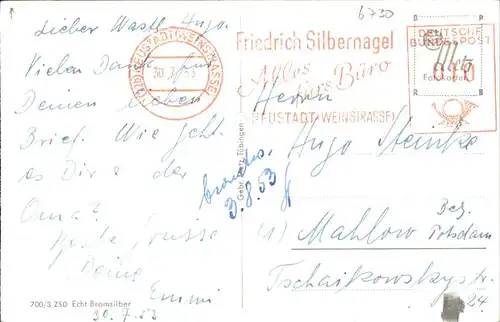 6730
Lieber Wastl, Hugo.
Vielen Dank für
Deinen lieben
Brief. Wie geht
es Dir & der
Oma?
Herzl. Grüsse
Deine
Emmi
30.7.53
(22b) NEUSTADT (WEINSTRASSE)
30.7.53
Friedrich Silbernagel
Alles fürs Büro
NEUSTADT (WEINSTRASSE)
DEUTSCHE
BUNDESPOST
Fotokarten
Gebr. Metz Tübingen
3.8.53
Herrn
Hugo
(1) Mahlow Bez. Potsdam
Tschaikowskystr.
24
700/3 ZSD Echt Bromsilber